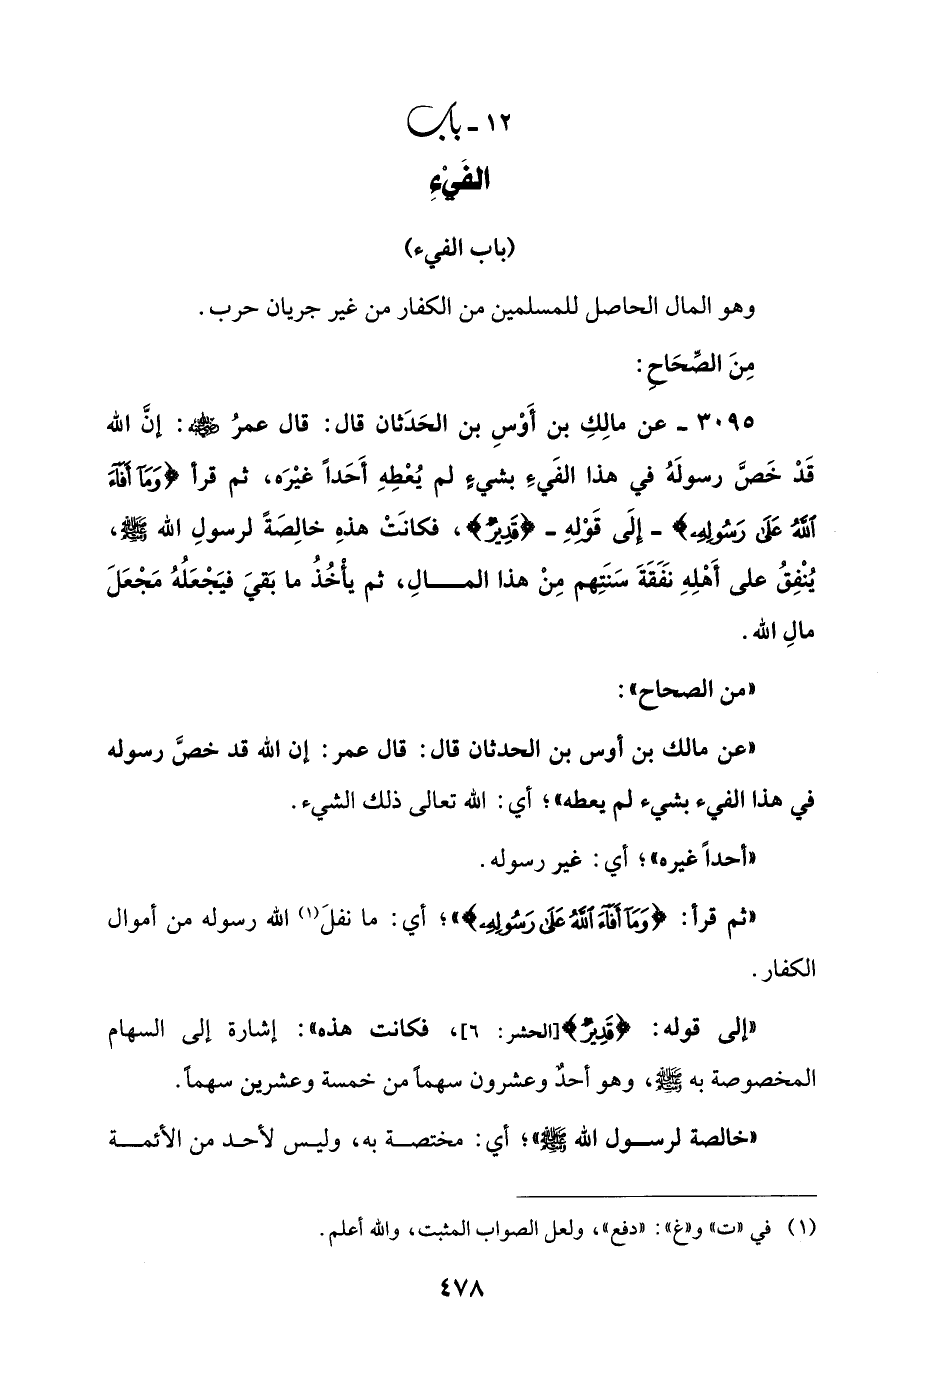 ١٢ - باب
الفَيْءِ
(باب الفيء)
وهو المال الحاصل للمسلمين من الكفار من غير جريان حرب.
مِنَ الصِّحَاحِ:
٣٠٩٥ - عن مالِكِ بن أَوْسِ بن الحَدَثان قال: قال عمرُ ﵁: إنَّ الله
قَدْ خَصَّ رسولَهُ في هذا الفَيءِ بشيءٍ لم يُعْطِهِ أَحَداً غيْرَه، ثم قرأ ﴿وَمَآ أَفَآءَ
ٱللَّهُ عَلَىٰ رَسُولِهِۦ﴾ - إلَى قَوْلِهِ - ﴿قَدِيرٌ﴾، فكانَتْ هذهِ خالِصَةً لرسولِ الله ﷺ،
يُنْفِقُ على أَهْلِهِ نَفَقَةَ سَنَتِهم مِنْ هذا المـــالِ، ثم يأْخُذُ ما بقيَ فيَجْعَلُهُ مَجْعَلَ
مالِ الله.
«من الصحاح»:
«عن مالك بن أوس بن الحدثان قال: قال عمر: إن الله قد خصَّ رسوله
في هذا الفيء بشيء لم يعطه»؛ أي: الله تعالى ذلك الشيء.
«أحداً غيره»؛ أي: غير رسوله.
«ثم قرأ: ﴿وَمَآ أَفَآءَ ٱللَّهُ عَلَىٰ رَسُولِهِۦ﴾»؛ أي: ما نفلَ(١) الله رسوله من أموال
الكفار.
«إلى قوله: ﴿قَدِيرٌ﴾[الحشر: ٦]، فكانت هذه»: إشارة إلى السهام
المخصوصة به ﷺ، وهو أحدٌ وعشرون سهماً من خمسة وعشرين سهماً.
«خالصة لرســول الله ﷺ»؛ أي: مختصــة به، وليس لأحد من الأئمــة
(١) في «ت» و«غ»: «دفع»، ولعل الصواب المثبت، والله أعلم.
٤٧٨